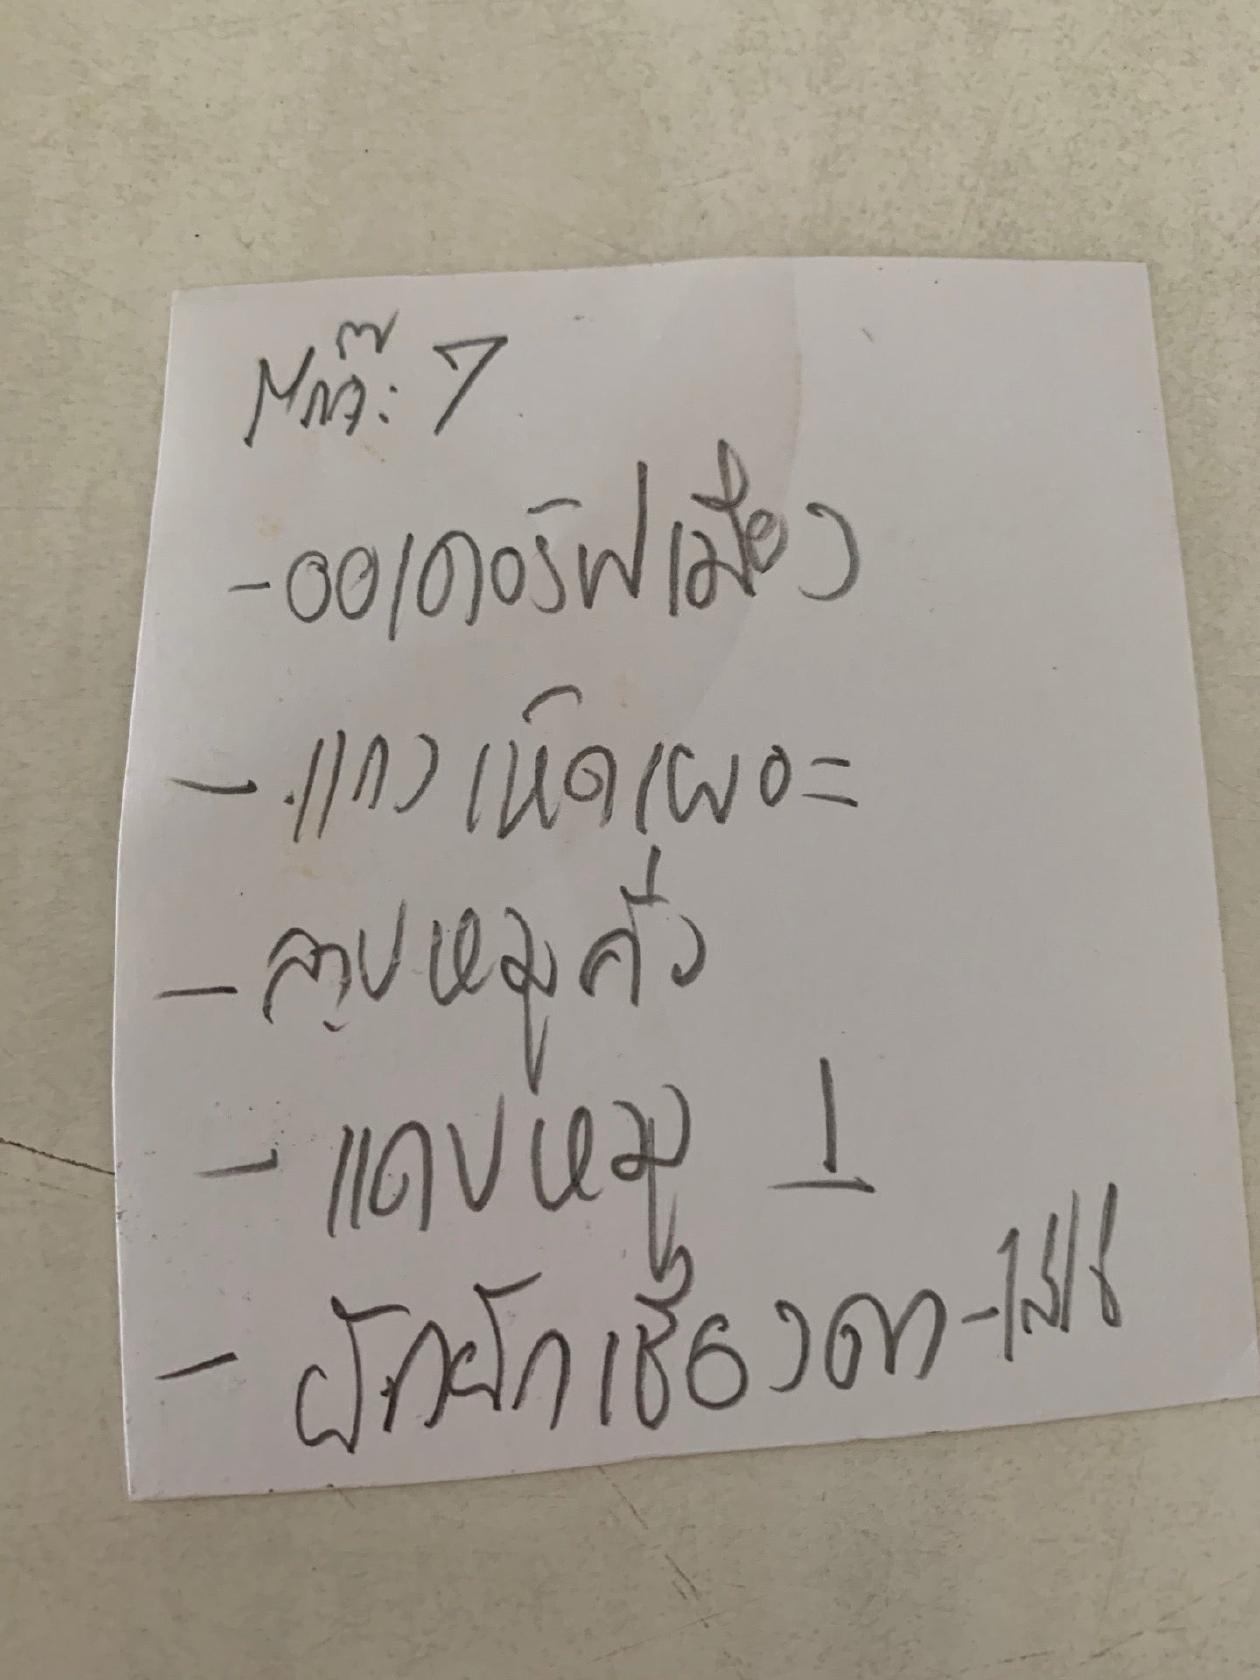 โต๊ะ 7
- ออเดอร์ฟเมือง
- แกงเห็ดเผอะ
- ลาบหมูคั่ว
- แคบหมู 1
- ผัดผักเชียงดา - ไข่